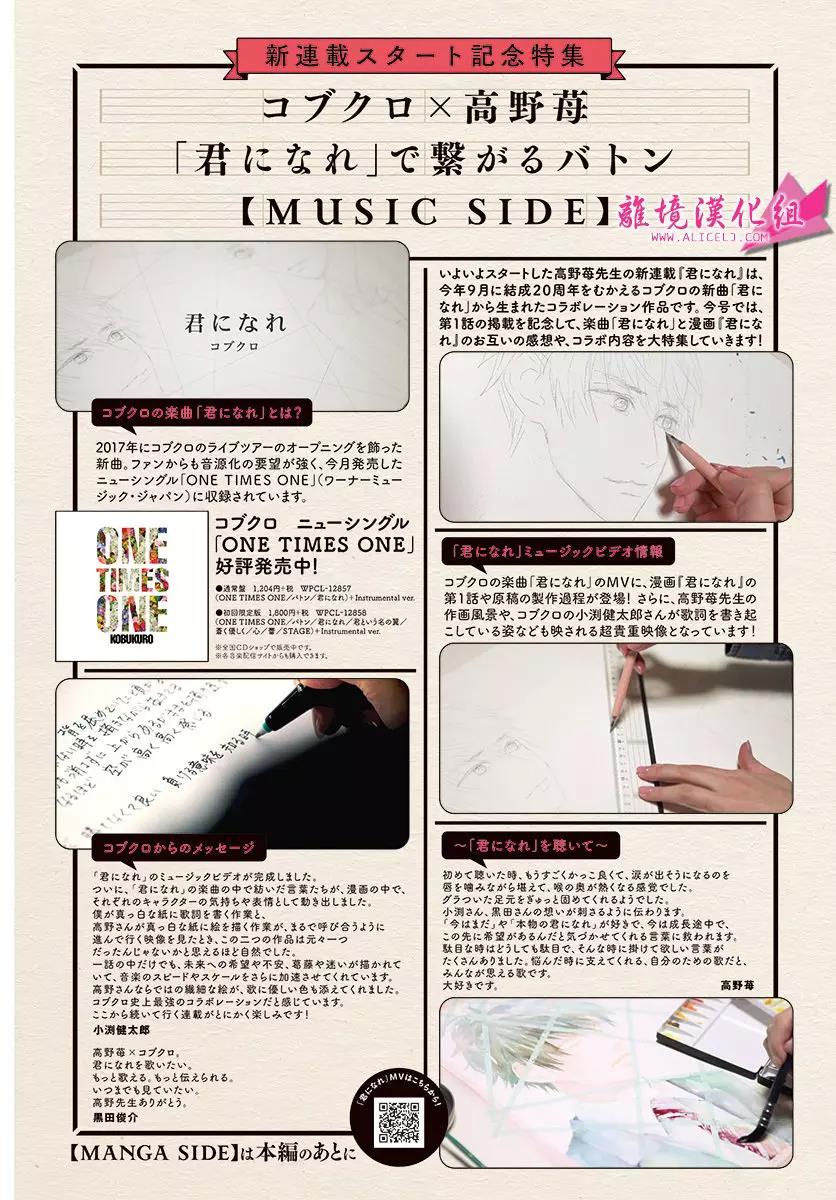 新連載スタート記念特集
コブクロ×高野苺
「君になれ」で繋がるバトン
【MUSIC SIDE】
離境漢化組
WWW.ALICELJ.COM
君になれ
コブクロ
コブクロの楽曲「君になれ」とは?
2017年にコブクロのライブツアーのオープニングを飾った
新曲。ファンからも音源化の要望が強く、今月発売した
ニューシングル「ONE TIMES ONE」(ワーナーミュー
ジック・ジャパン)に収録されています。
ONE
TIMES
ONE
KOBUKURO
コブクロ ニューシングル
「ONE TIMES ONE」
好評発売中!
●通常盤 1,204円+税 WPCL-12857
(ONE TIMES ONE/バトン/君になれ)+Instrumental ver.
●初回限定版 1,800円+税 WPCL-12858
(ONE TIMES ONE/バトン/君になれ/君という名の翼/
蒼く優しく/心/蕾/STAGE)+Instrumental ver.
※全国CDショップで販売中です。
※各音楽配信サイトからも購入できます。
空が高く高く
負ける意味を知る時
コブクロからのメッセージ
「君になれ」のミュージックビデオが完成しました。
ついに、「君になれ」の楽曲の中で紡いだ言葉たちが、漫画の中で、
それぞれのキャラクターの気持ちや表情として動き出しました。
僕が真っ白な紙に歌詞を書く作業と、
高野さんが真っ白な紙に絵を描く作業が、まるで呼び合うように
進んで行く映像を見たとき、この二つの作品は元々一つ
だったんじゃないかと思えるほど自然でした。
一話の中だけでも、未来への希望や不安、葛藤や迷いが描かれて
いて、音楽のスピードやスケールをさらに加速させてくれています。
高野さんならではの繊細な絵が、歌に優しい色も添えてくれました。
コブクロ史上最強のコラボレーションだと感じています。
ここから続いて行く連載がとにかく楽しみです!
小渕健太郎
高野苺×コブクロ。
君になれを歌いたい。
もっと歌える。もっと伝えられる。
いつまでも見ていたい。
高野先生ありがとう。
黒田俊介
【MANGA SIDE】は本編のあとに
「君になれ」MVはこちらから!
いよいよスタートした高野苺先生の新連載『君になれ』は、
今年9月に結成20周年をむかえるコブクロの新曲「君に
なれ」から生まれたコラボレーション作品です。今号では、
第1話の掲載を記念して、楽曲「君になれ」と漫画『君にな
れ』のお互いの感想や、コラボ内容を大特集していきます!
「君になれ」ミュージックビデオ情報
コブクロの楽曲「君になれ」のMVに、漫画『君になれ』の
第1話や原稿の製作過程が登場! さらに、高野苺先生の
作画風景や、コブクロの小渕健太郎さんが歌詞を書き起
こしている姿なども映される超貴重映像となっています!
～「君になれ」を聴いて～
初めて聴いた時、もうすごくかっこ良くて、涙が出そうになるのを
唇を噛みながら堪えて、喉の奥が熱くなる感覚でした。
グラついた足元をぎゅっと固めてくれるようでした。
小渕さん、黒田さんの想いが刺さるように伝わります。
「今はまだ」や「本物の君になれ」が好きで、今は成長途中で、
この先に希望があるんだと気づかせてくれる言葉に救われます。
駄目な時はどうしても駄目で、そんな時に掛けて欲しい言葉が
たくさんありました。悩んだ時に支えてくれる、自分のための歌だと、
みんなが思える歌です。
大好きです。
高野苺